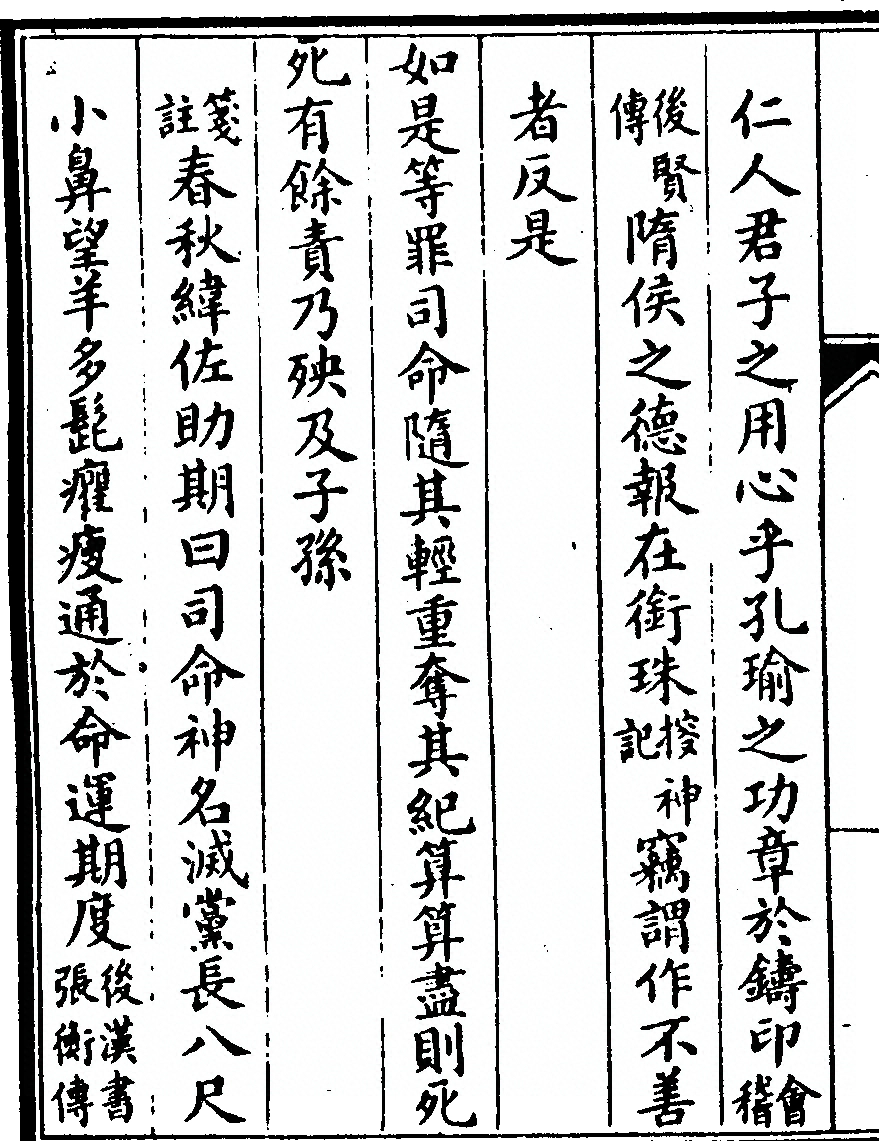 仁人君子之用心乎孔瑜之功章於鑄印會稽
後賢傳隋侯之德報在銜珠搜神記竊謂作不善
者反是
如是等罪司命隨其輕重奪其紀算算盡則死
死有餘責乃殃及子孫
箋註春秋緯佐助期曰司命神名滅黨長八尺
小鼻望羊多髭癯瘦通於命運期度後漢書張衡傳